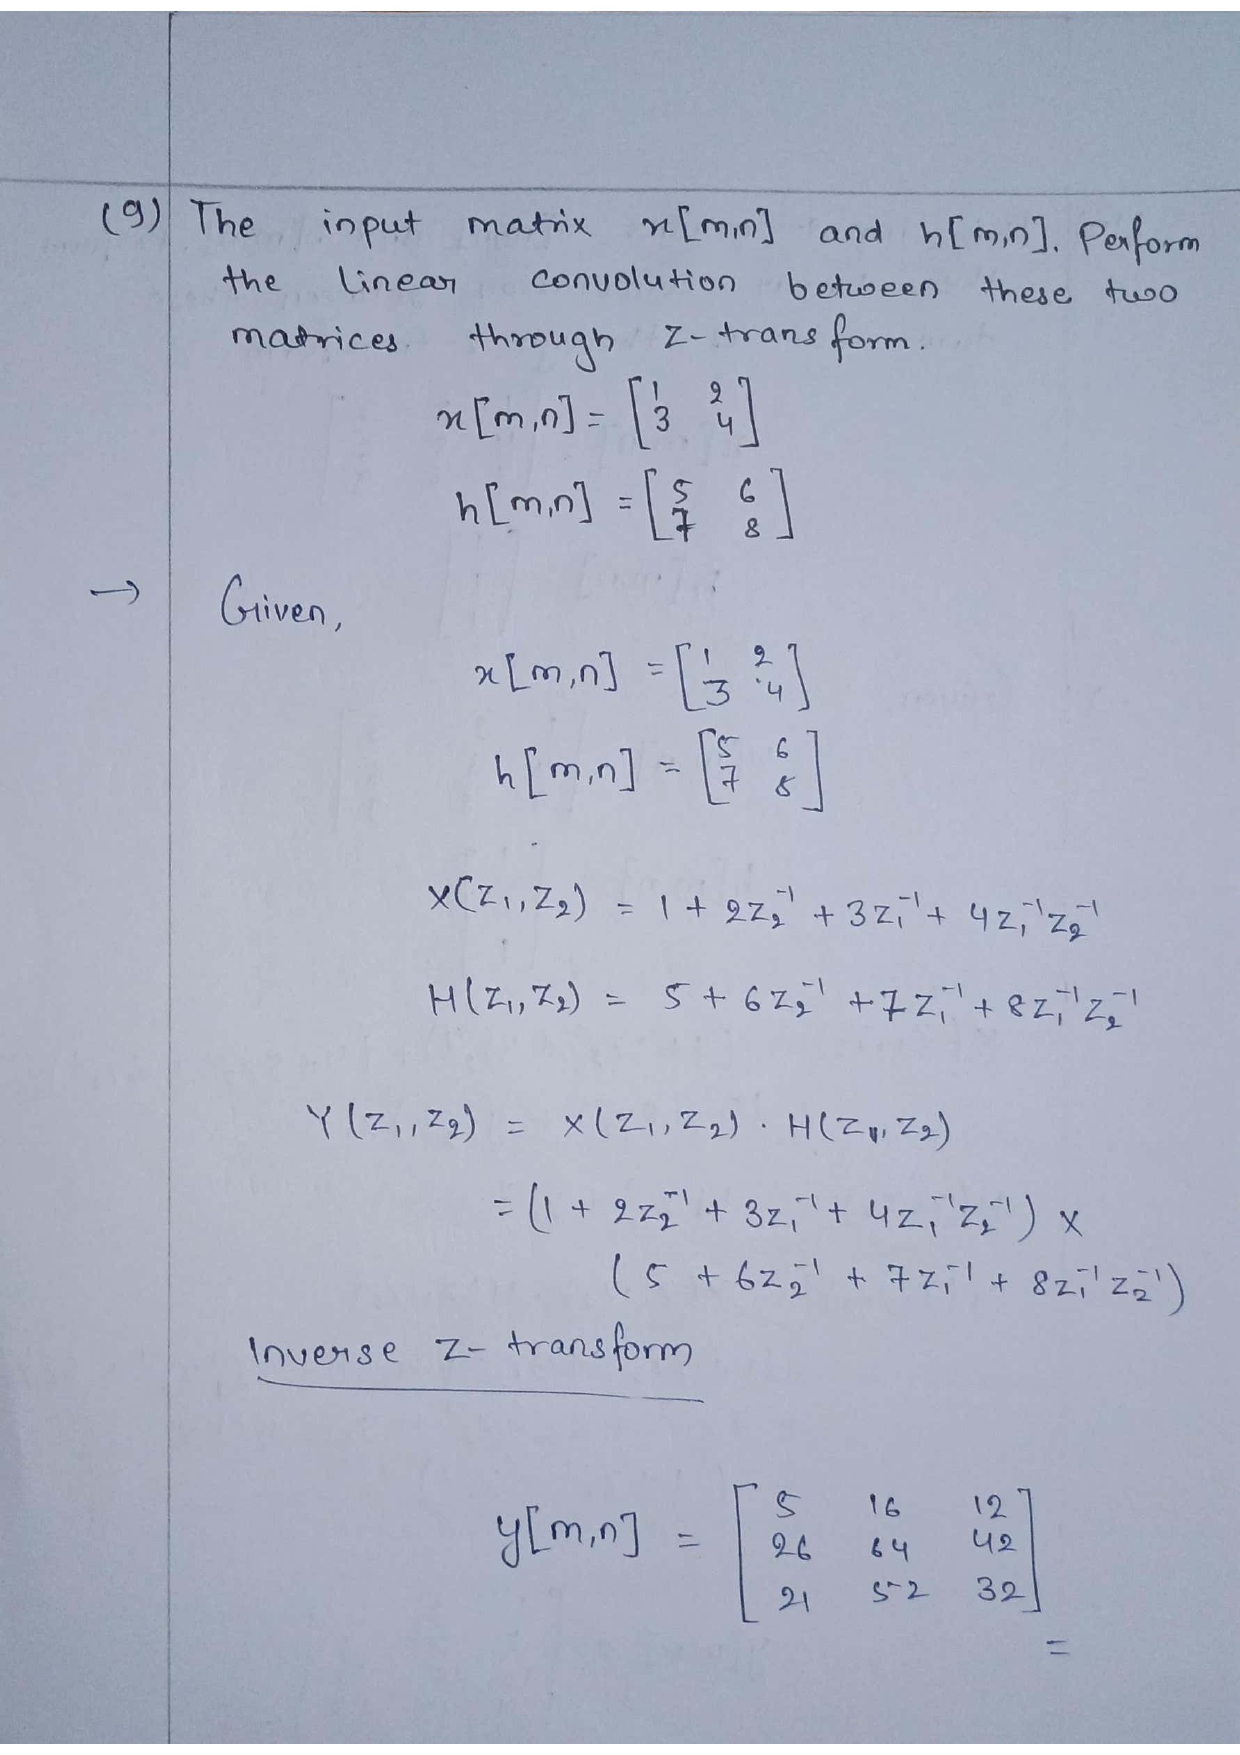 (9) The input matrix x[m,n] and h[m,n]. Perform
the linear convolution between these two
matrices through z-transform.
x[m,n] = [1 2
3 4]
h[m,n] = [5 6
7 8]
→ Given,
x[m,n] = [1 2
3 4]
h[m,n] = [5 6
7 8]
X(Z₁,Z₂) = 1 + 2Z₂⁻¹ + 3Z₁⁻¹ + 4Z₁⁻¹Z₂⁻¹
H(Z₁,Z₂) = 5 + 6Z₂⁻¹ + 7Z₁⁻¹ + 8Z₁⁻¹Z₂⁻¹
Y(Z₁,Z₂) = X(Z₁,Z₂) . H(Z₁,Z₂)
= (1 + 2Z₂⁻¹ + 3Z₁⁻¹ + 4Z₁⁻¹Z₂⁻¹) ×
(5 + 6Z₂⁻¹ + 7Z₁⁻¹ + 8Z₁⁻¹Z₂⁻¹)
Inverse z-transform
y[m,n] = [5 16 12
26 64 42
21 52 32]
=